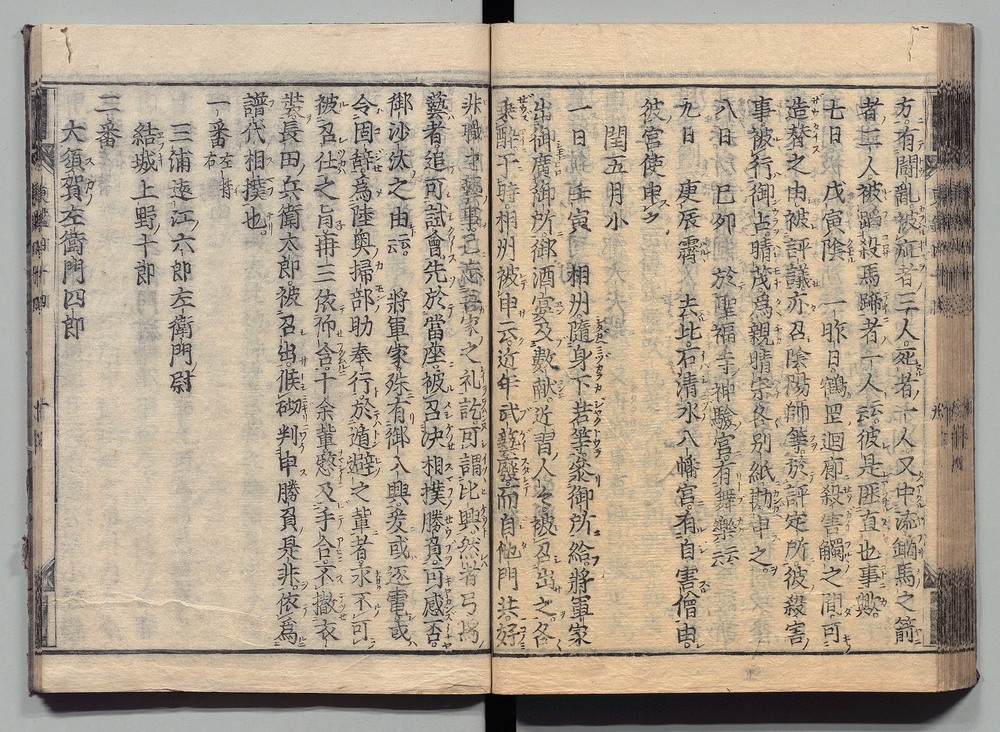 方有閙乱被疵者三人死者一人又中流鏑馬之箭
者二人被蹈殺馬蹄者十人云云彼是匪直也事歟
七日　戊寅陰　一昨日鶴罡廻廊殺害觸之間可
造替之由被評議亦召陰陽師等於評定所彼殺害
事被行御占晴茂為親晴宗各別紙勘申之
八日　巳卯　於聖福寺神驗宮有舞樂云云
九日　庚辰霽　去比石清水八幡宮有自害僧由
彼宮使申之
閏五月小
一日　壬寅　相州隨身下若等參御所給將軍家
出御廣御所御酒宴及數献近習人々被召出之各
乗醉于時相州被申云近年武藝廢而自他門共好
非職才藝事已忘吾家之礼訖可謂比興然者弓馬
藝者追可試會先於當座被召决相撲勝負可感否
御沙汰之由云云　將軍家殊有御入興爰或逐電或
令固辞為陸奥掃部助奉行於遁避之輩者永不可
被召仕之旨再三依仰含十余輩憖及手合不撤衣
裝長田兵衛太郎被召出候砌判申勝負是非依為
譜代相撲也
一番 左持右
三浦遠江六郎左衛門尉
結城上野十郎
二番
大須賀左衛門四郎